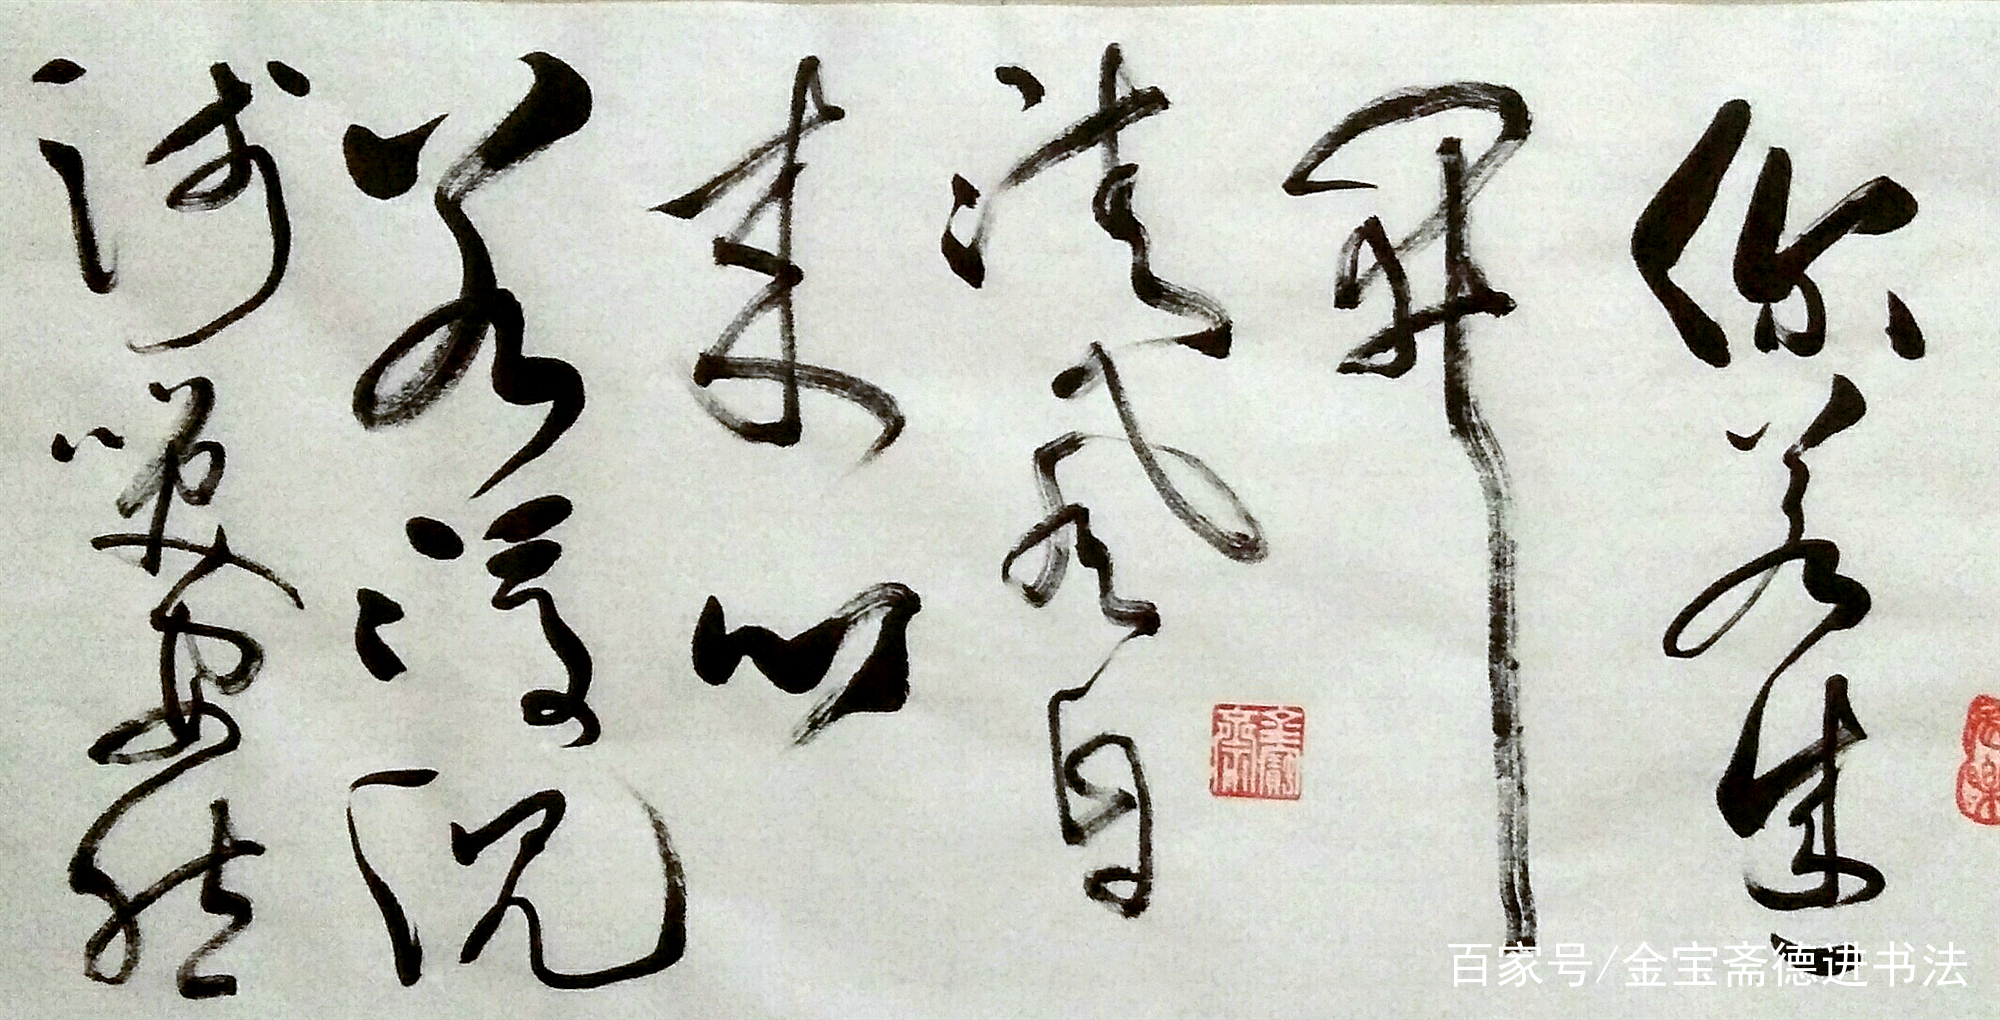 你若盛
開
清风自
来心
若浮沉
浅笑安然
百家号/金宝斋德进书法